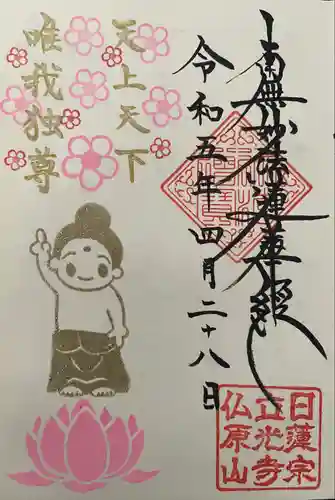 南無妙法蓮華経
令和五年四月二十八日
天上天下
唯我独尊
日蓮宗
光寺
仏原山